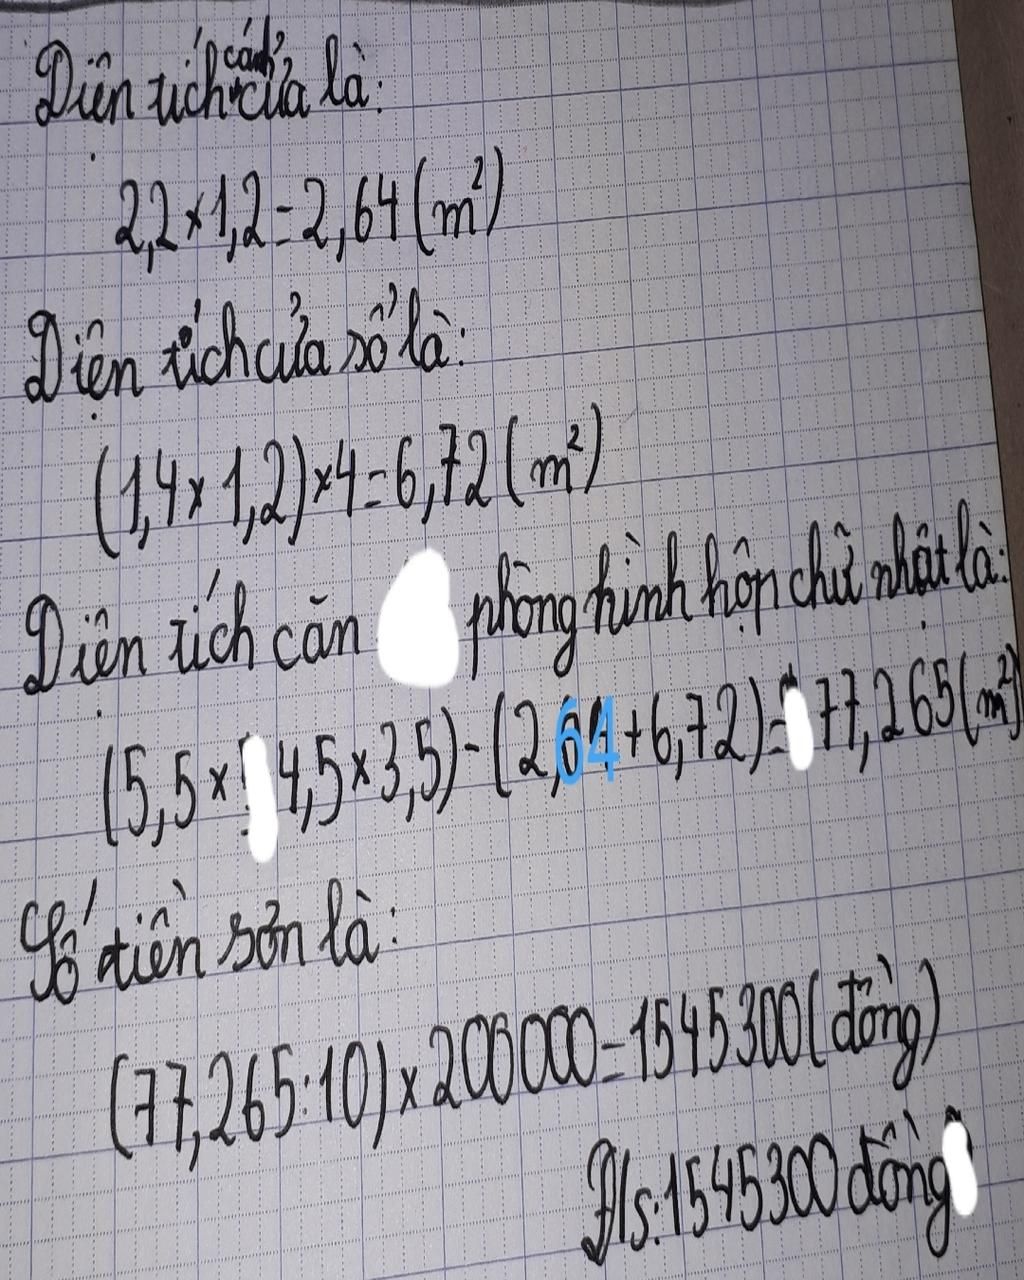 Diện tích cánh cửa là:
2,2×1,2=2,64(m²)
Diện tích cửa sổ là:
(1,4×1,2)×4=6,72(m²)
Diện tích căn phòng hình hộp chữ nhật là:
(5,5×4,5×3,5)-(2,64+6,72)=77,265(m²)
Số tiền sơn là:
(77,265:10)×200000=1545300(đồng)
Đ/s:1545300 đồng